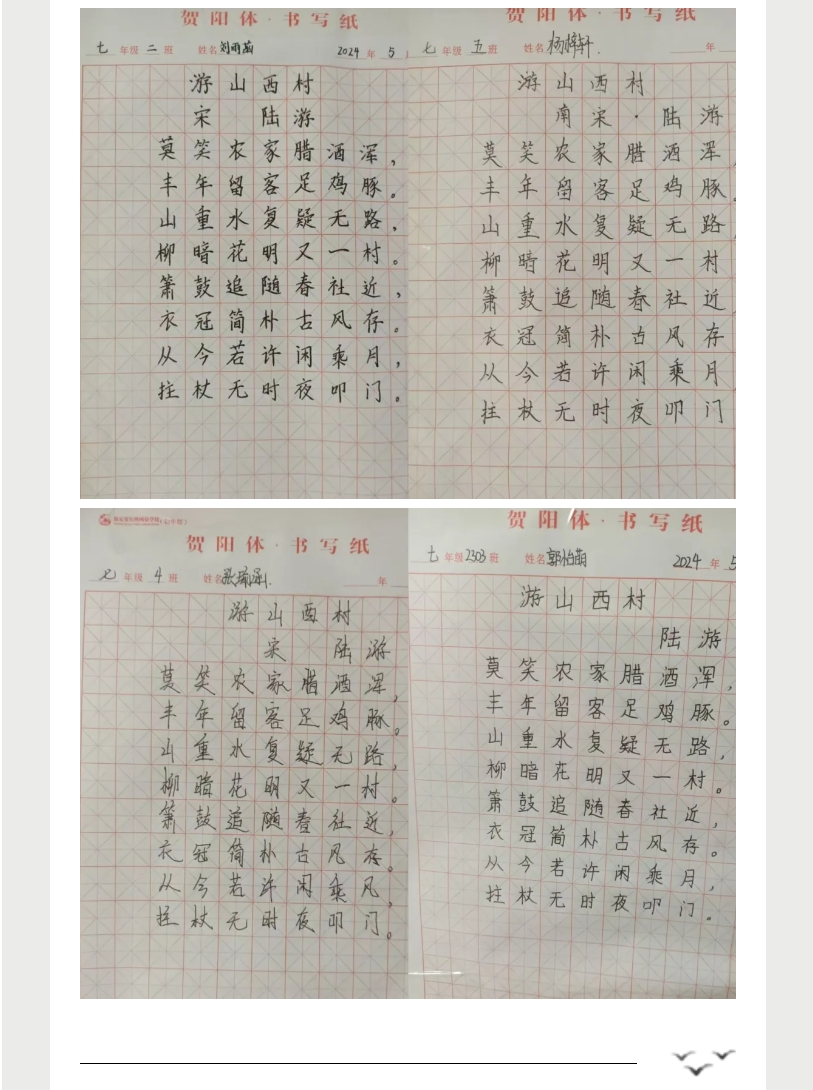 贺阳体·书写纸
七年级二班 姓名 2024年5
游山西村
宋 陆游
莫笑农家腊酒浑，
丰年留客足鸡豚。
山重水复疑无路，
柳暗花明又一村。
箫鼓追随春社近，
衣冠简朴古风存。
从今若许闲乘月，
拄杖无时夜叩门。
贺阳体·书写纸
七年级五班 姓名杨梓轩 年
游山西村
南宋·陆游
莫笑农家腊酒浑，
丰年留客足鸡豚。
山重水复疑无路，
柳暗花明又一村
箫鼓追随春社近
衣冠简朴古风存
从今若许闲乘月
拄杖无时夜叩门
贺阳体·书写纸
七年级4班 姓名 年
游山西村
宋 陆游
莫笑农家腊酒浑，
丰年留客足鸡豚。
山重水复疑无路，
柳暗花明又一村。
箫鼓追随春社近，
衣冠简朴古风存。
从今若许闲乘风，
拄杖无时夜叩门。
贺阳体·书写纸
七年级2303班 姓名郭怡萌 2024年5
游山西村
陆游
莫笑农家腊酒浑，
丰年留客足鸡豚。
山重水复疑无路，
柳暗花明又一村。
箫鼓追随春社近，
衣冠简朴古风存。
从今若许闲乘月，
拄杖无时夜叩门。